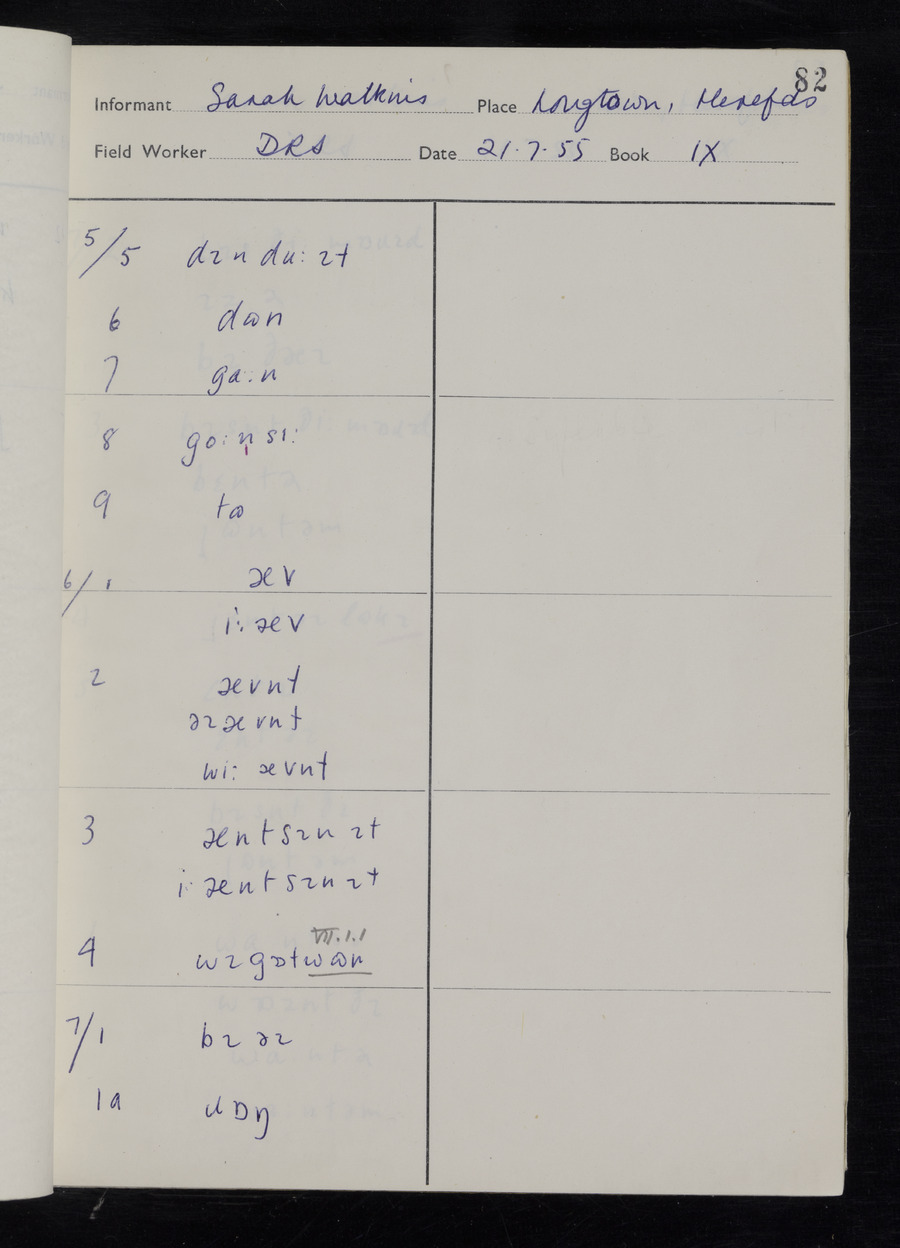 82
Informant Sarah Watkins Place Longtown, Herefds
Field Worker DRS Date 21·7·55 Book IX
5/5 dɪn duːɪt
6 dɷn
7 gaːn
8 goːn sɪː
9 tɷ
6/1 æv
iːæv
2 ævnt
əɪævnt
wiː ævnt
3 æntsɪnɪt
iːæntsɪnɪt
VII.1.1
4 wɪgɒtwɷn
7/1 bɪəɪ
1a dɒŋ